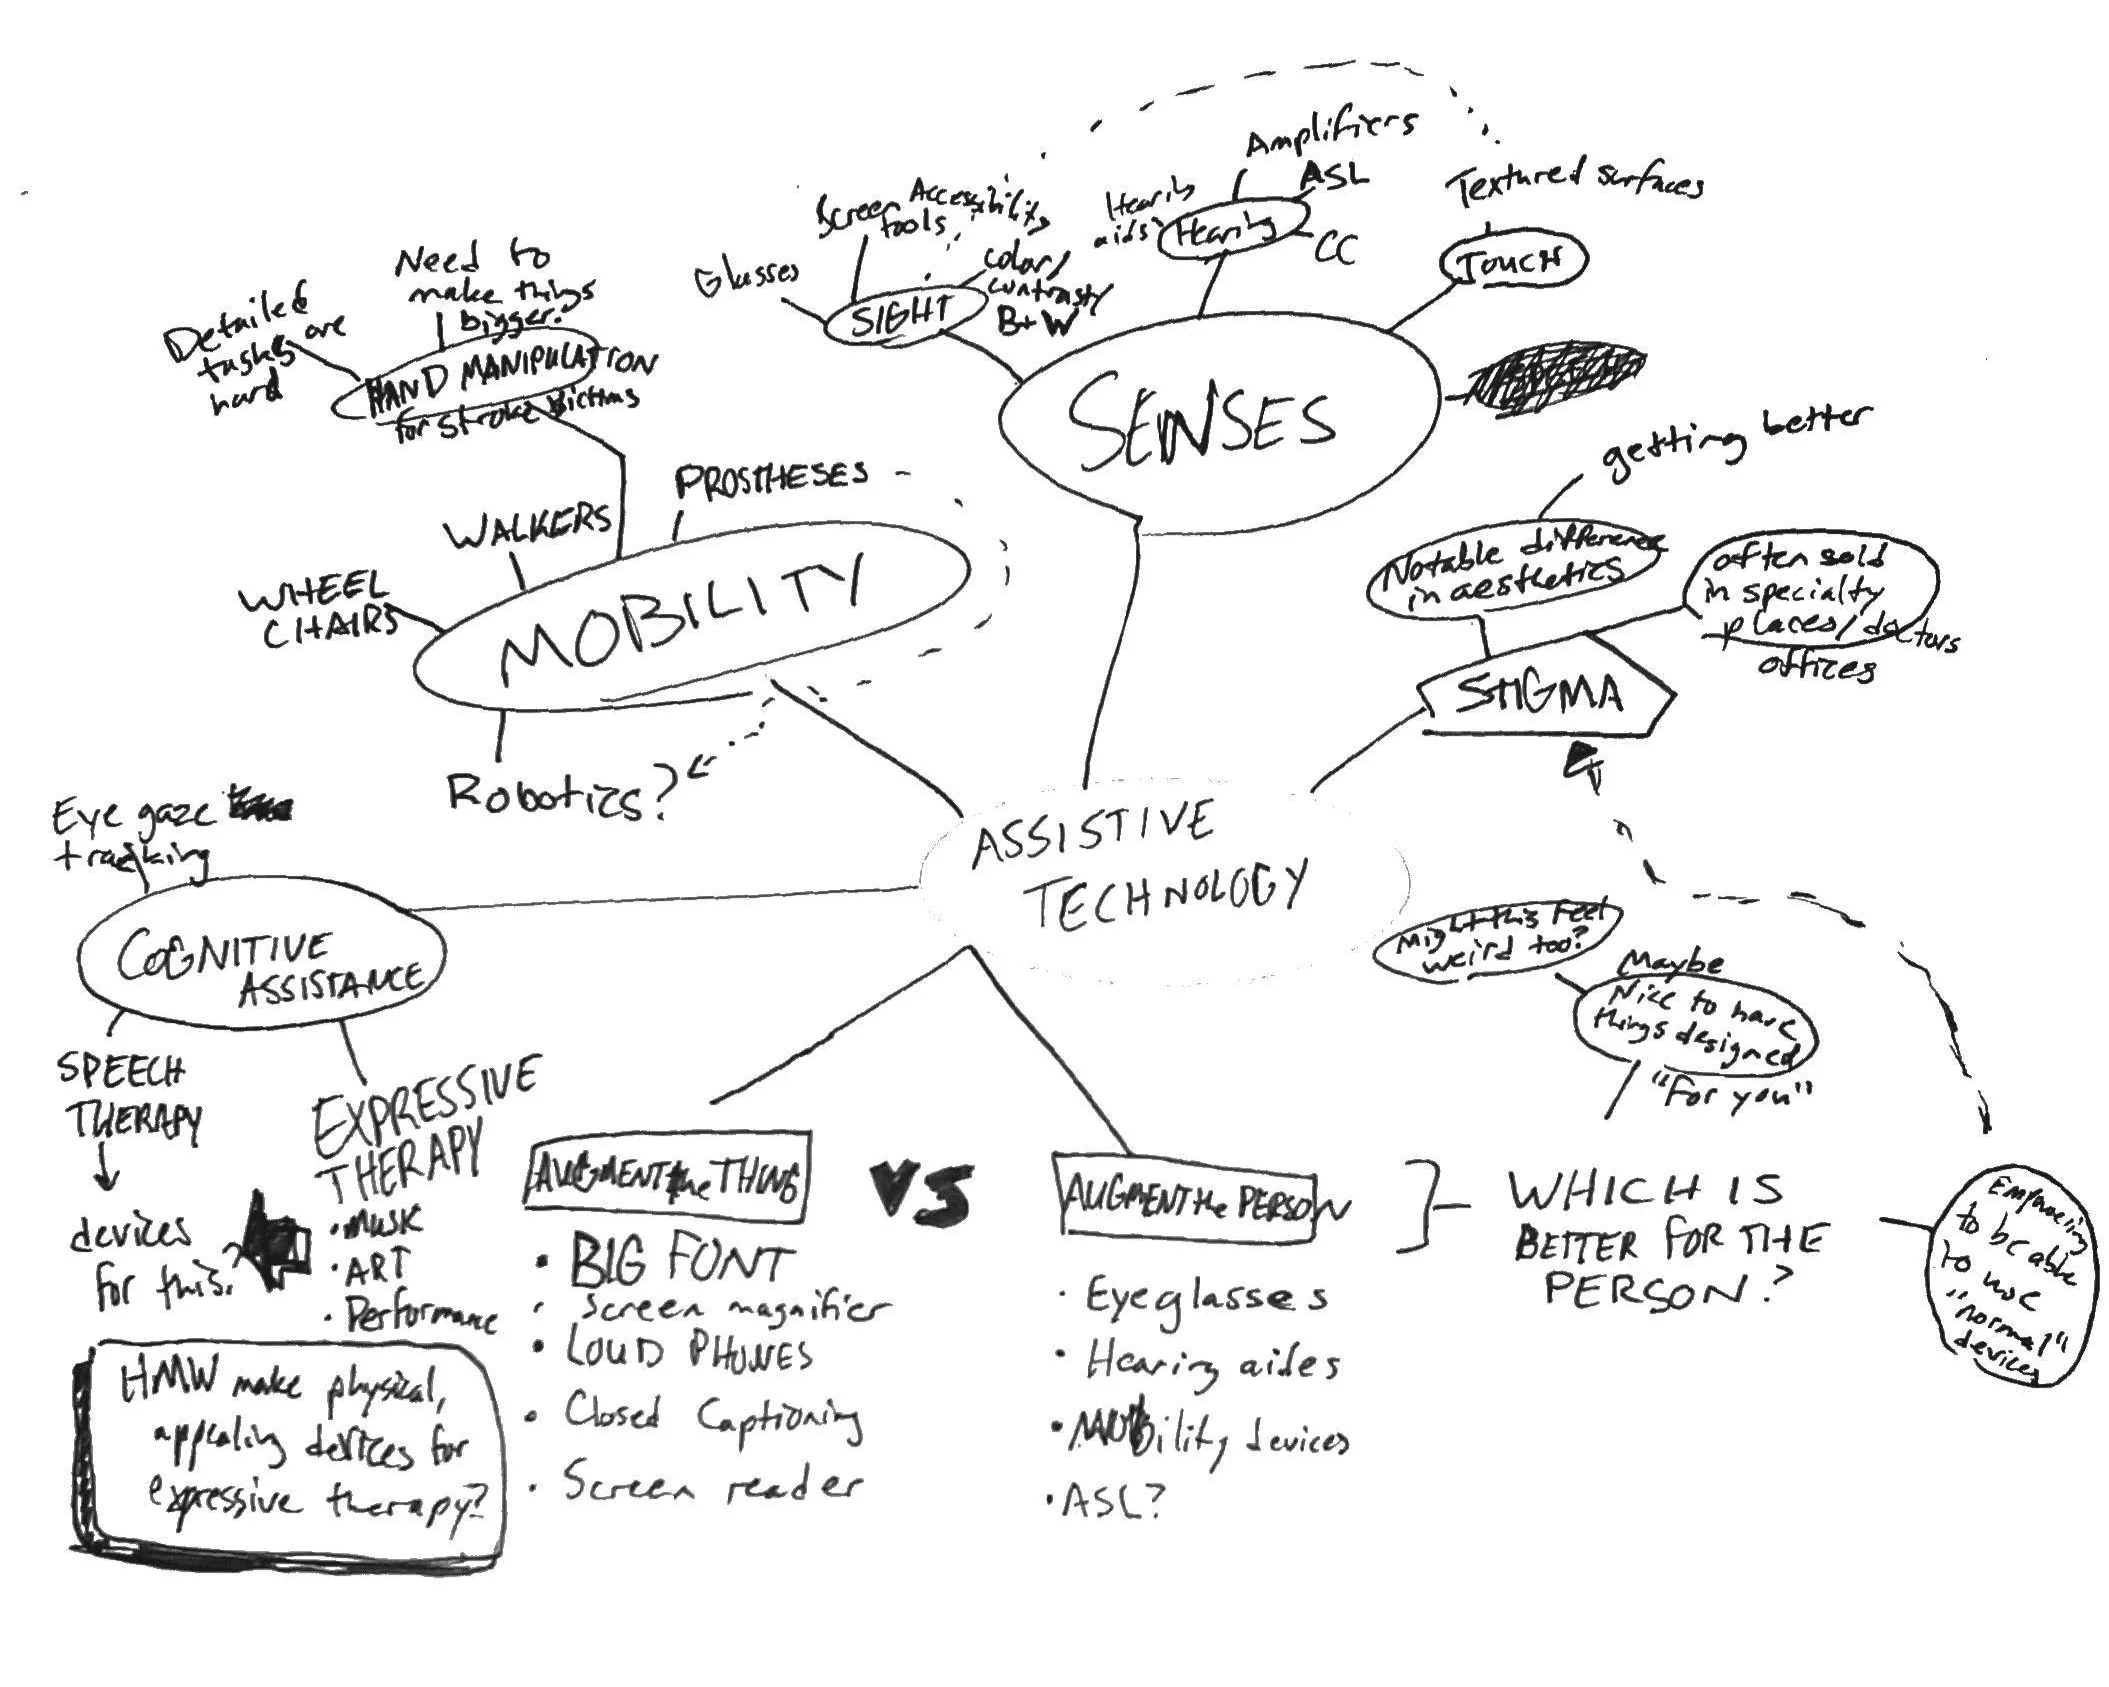 Amplifiers
ASL
Hearing
aids
Hearing
CC
Textured surfaces
TOUCH
Screen Accessibility
tools
Glasses
SIGHT
color/
contrast/
B+W
SENSES
Need to
make things
bigger.
Detailed
tasks are
hard
HAND MANIPULATION
for stroke victims
PROSTHESES
WALKERS
WHEEL
CHAIRS
MOBILITY
Robotics?
getting better
Notable difference
in aesthetics
often sold
in specialty
places/doctors
offices
STIGMA
ASSISTIVE
TECHNOLOGY
Eye gaze
tracking
COGNITIVE
ASSISTANCE
SPEECH
THERAPY
devices
for this?
EXPRESSIVE
THERAPY
• MUSIC
• ART
• Performance
HMW make physical,
appealing devices for
expressive therapy?
AUGMENT the THING
• BIG FONT
• Screen magnifier
• LOUD PHONES
• Closed Captioning
• Screen reader
VS
AUGMENT the PERSON
• Eyeglasses
• Hearing aides
• Mobility devices
• ASL?
Might this Feel
weird too?
Maybe
Nice to have
things designed
"For you"
WHICH IS
BETTER FOR THE
PERSON?
Empowering
to be able
to use
"normal"
devices